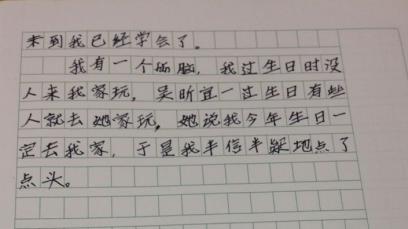 来到我已经学会了。
我有一个㘎脑，我过生日时没
人来我家玩，吴昕宜一过生日有些
人就去她家玩，她说我今年生日一
定去我家，于是我半信半疑地点了
点头。